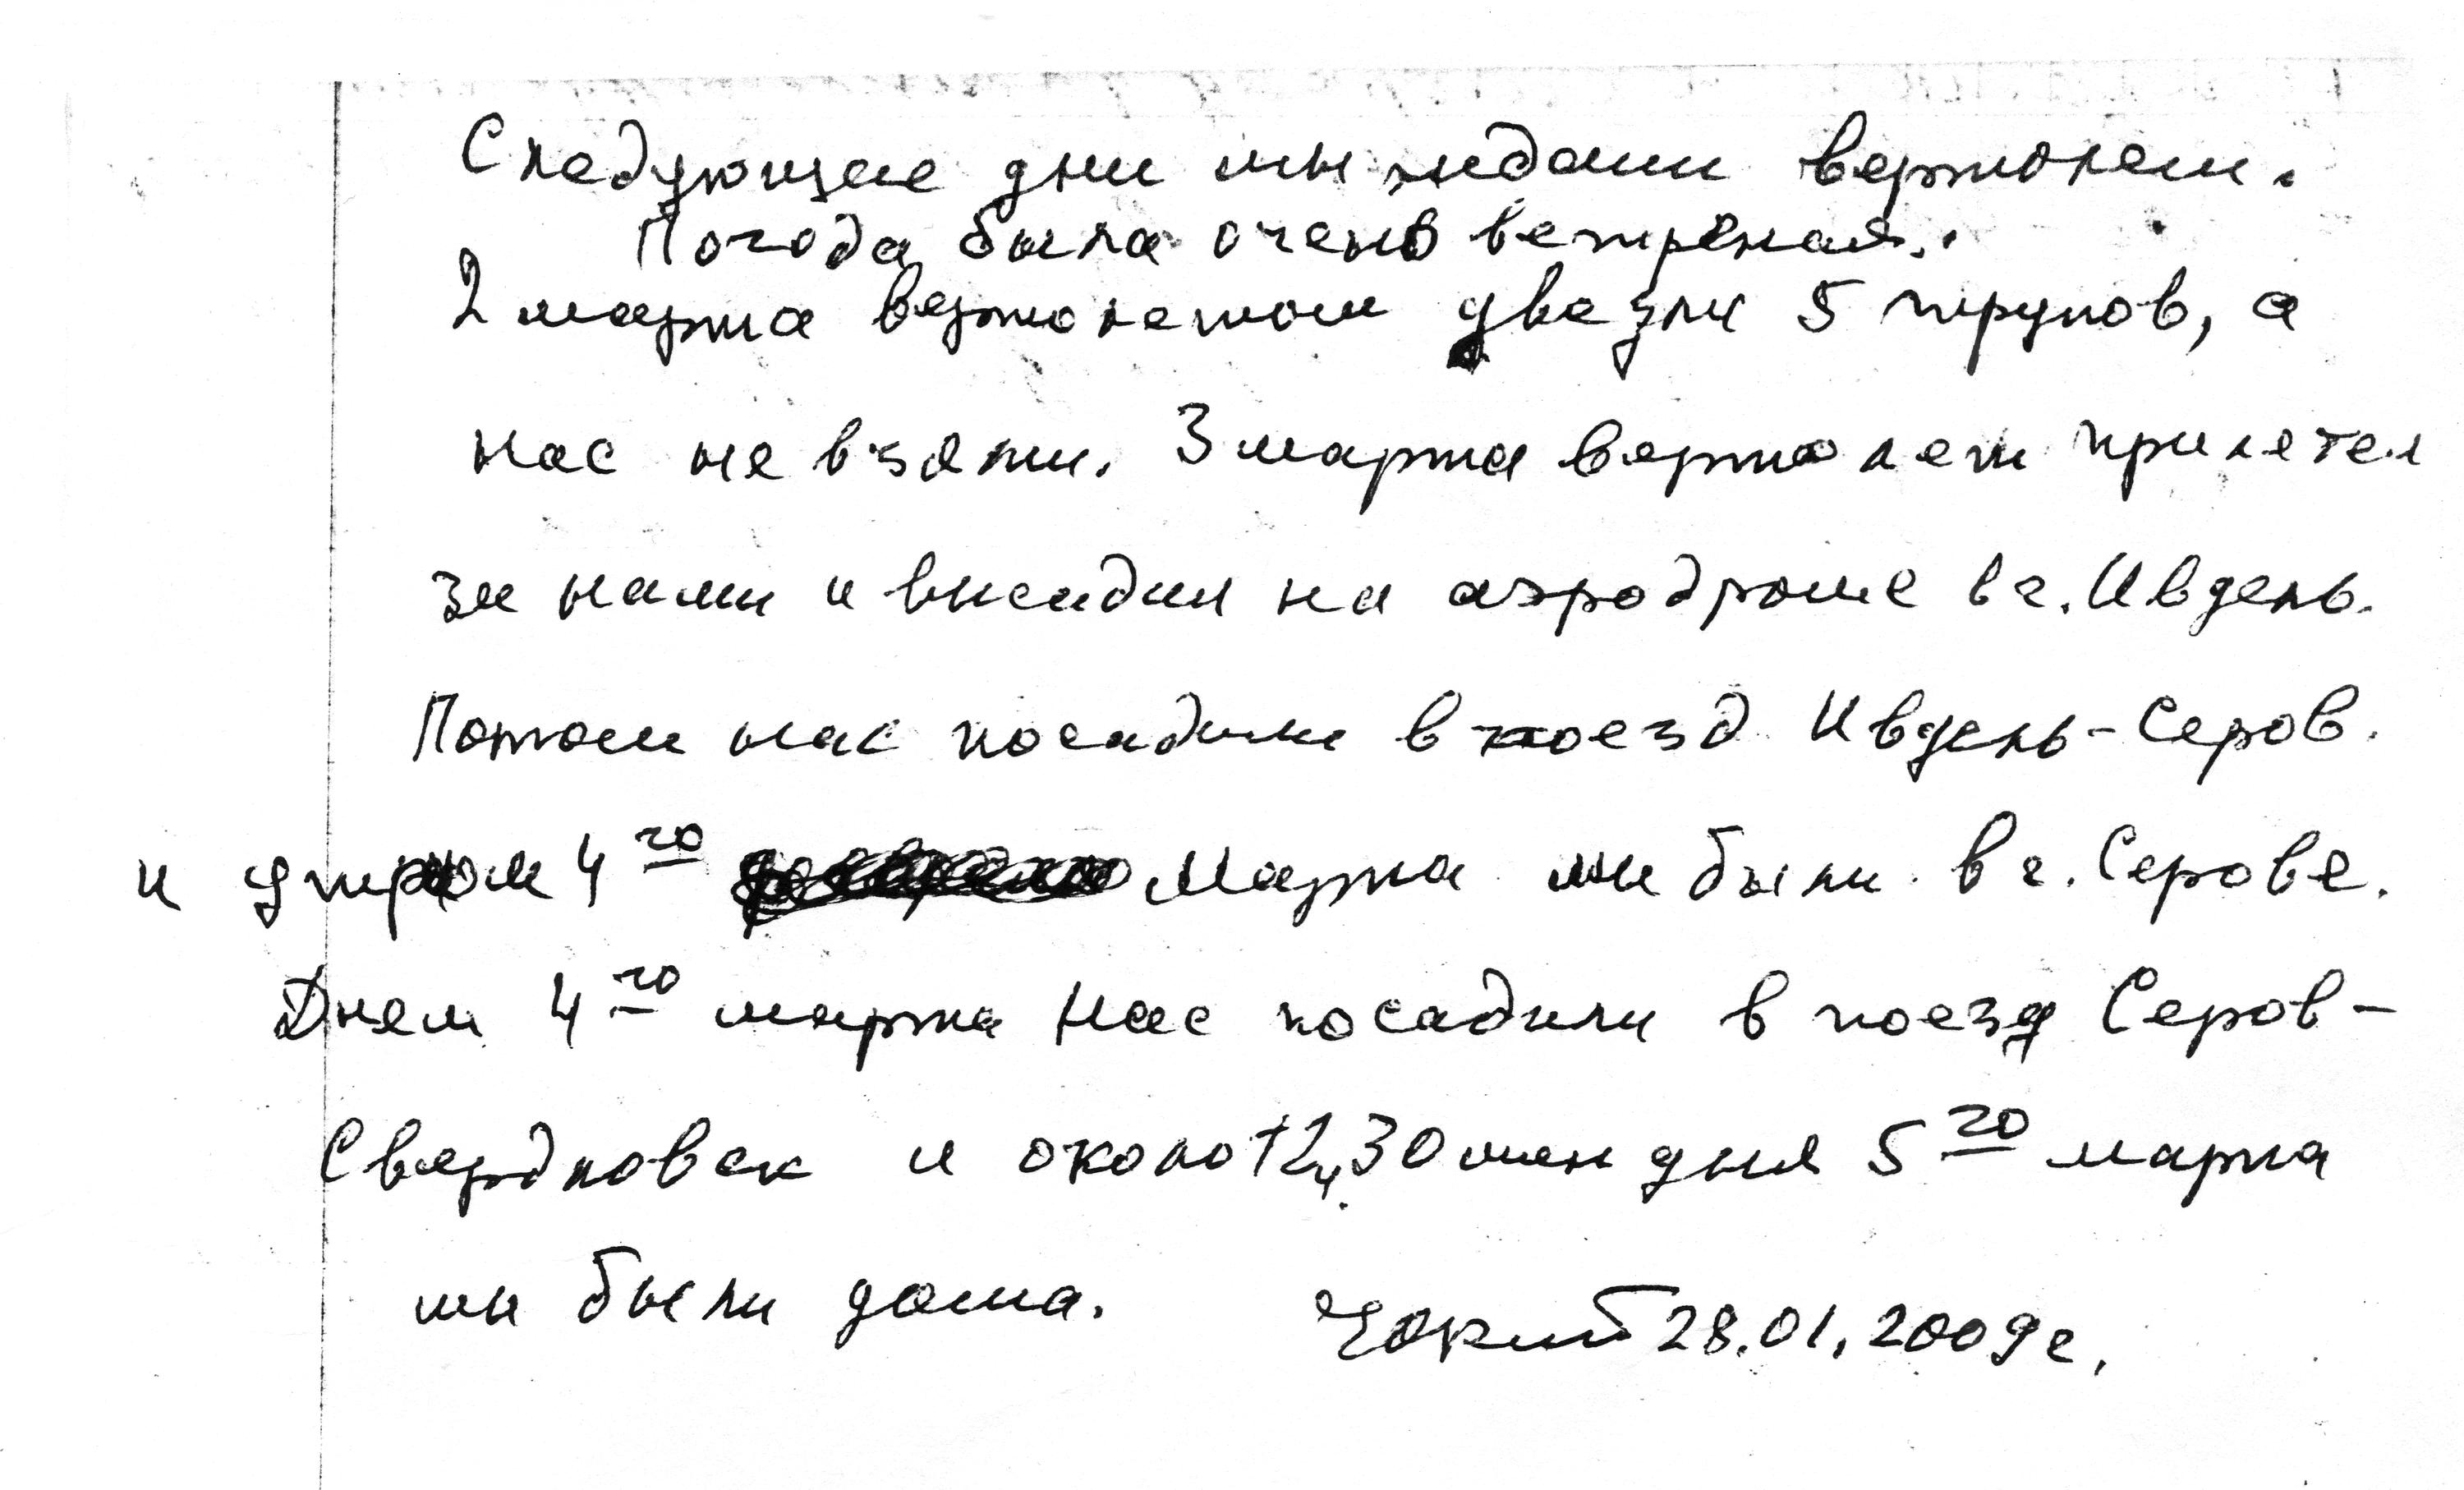 Следующие дни мы ждали вертолет.
Погода была очень ветреная.
2 марта вертолетом увезли 5 трупов, а
нас не взяли. 3 марта вертолет прилетел
за нами и высадил на аэродроме в г. Ивдель.
Потом нас посадили в поезд Ивдель-Серов.
и утром 4го Марта мы были в г. Серове.
Днем 4го марта нас посадили в поезд Серов-
Свердловск и около 12ч.30мин дня 5го марта
мы были дома. 28.01.2009г.